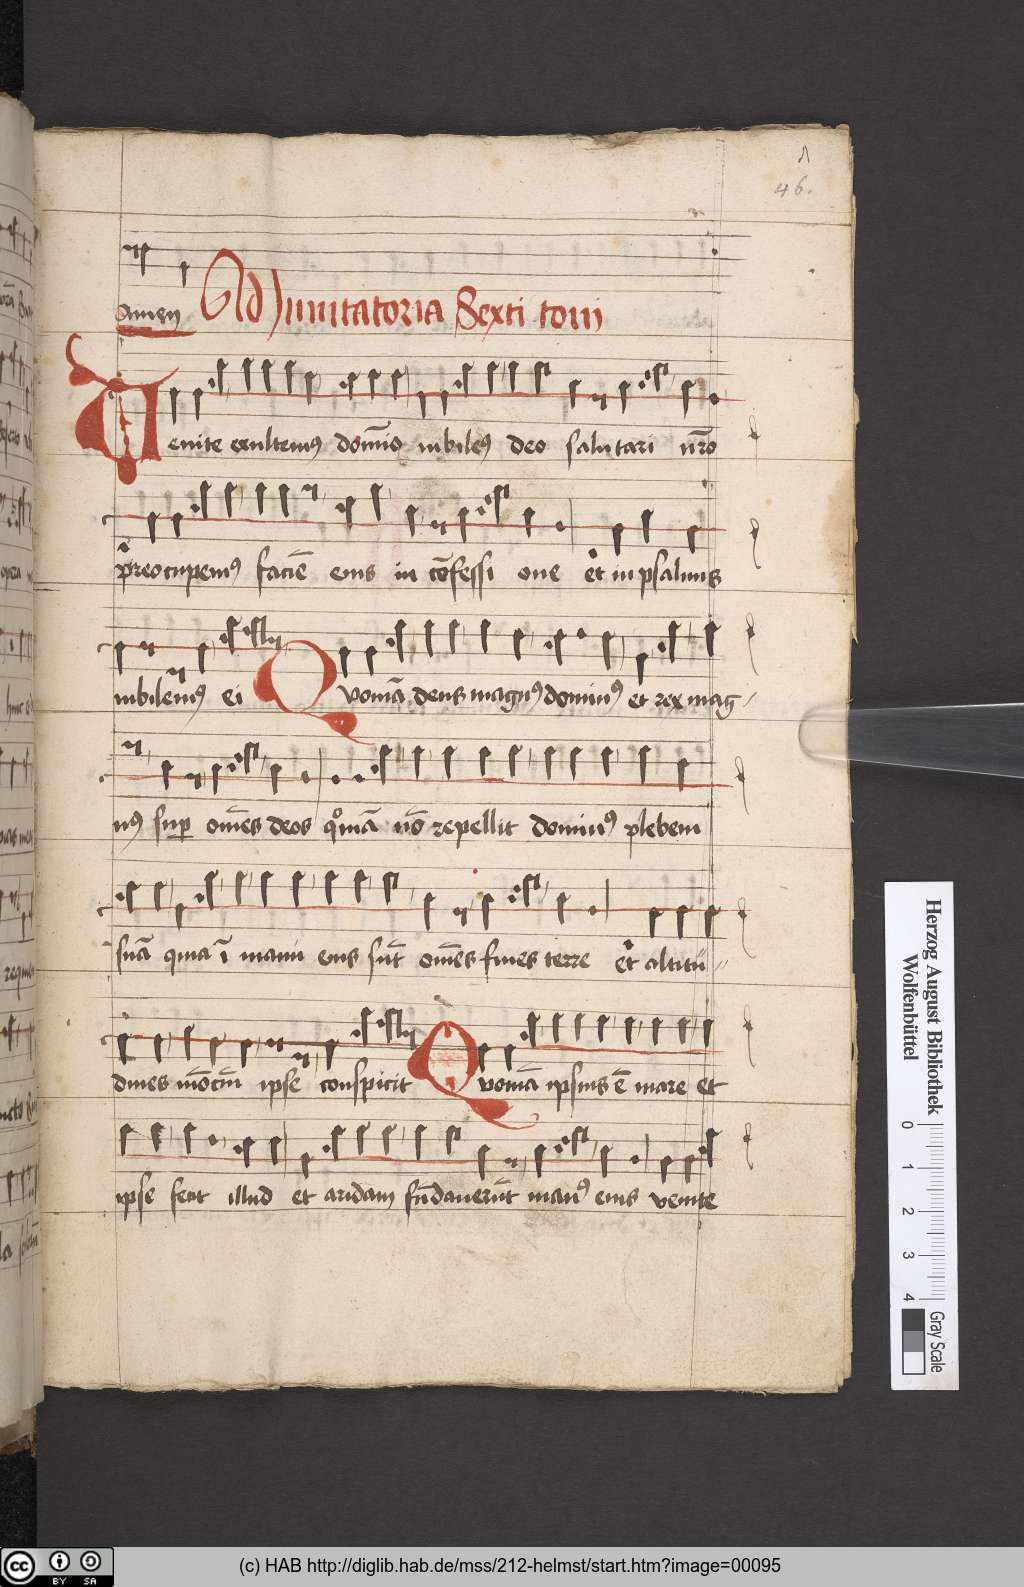 46.
Amen Ad Inuitatoria Sexti toni
Uenite exultemus domino iubilemus deo salutari nr̄o
preocupemus faciē eius in cōfessione et in psalmis
iubilemus ei Quoniā deus magnus dominus et rex mag
nus super om̄es deos qm̄oniā nō repellit dominus plebem
suā quia ī manu eius sūt om̄es fines terre et altitu
dines mōtiū ipse conspicit Quoniā ipsius ē mare et
ipse fecit illud et aridam fūdauerūt manus eius venite
Herzog August Bibliothek
Wolfenbüttel
0 1 2 3 4
Gray Scale
cc BY SA
(c) HAB http://diglib.hab.de/mss/212-helmst/start.htm?image=00095